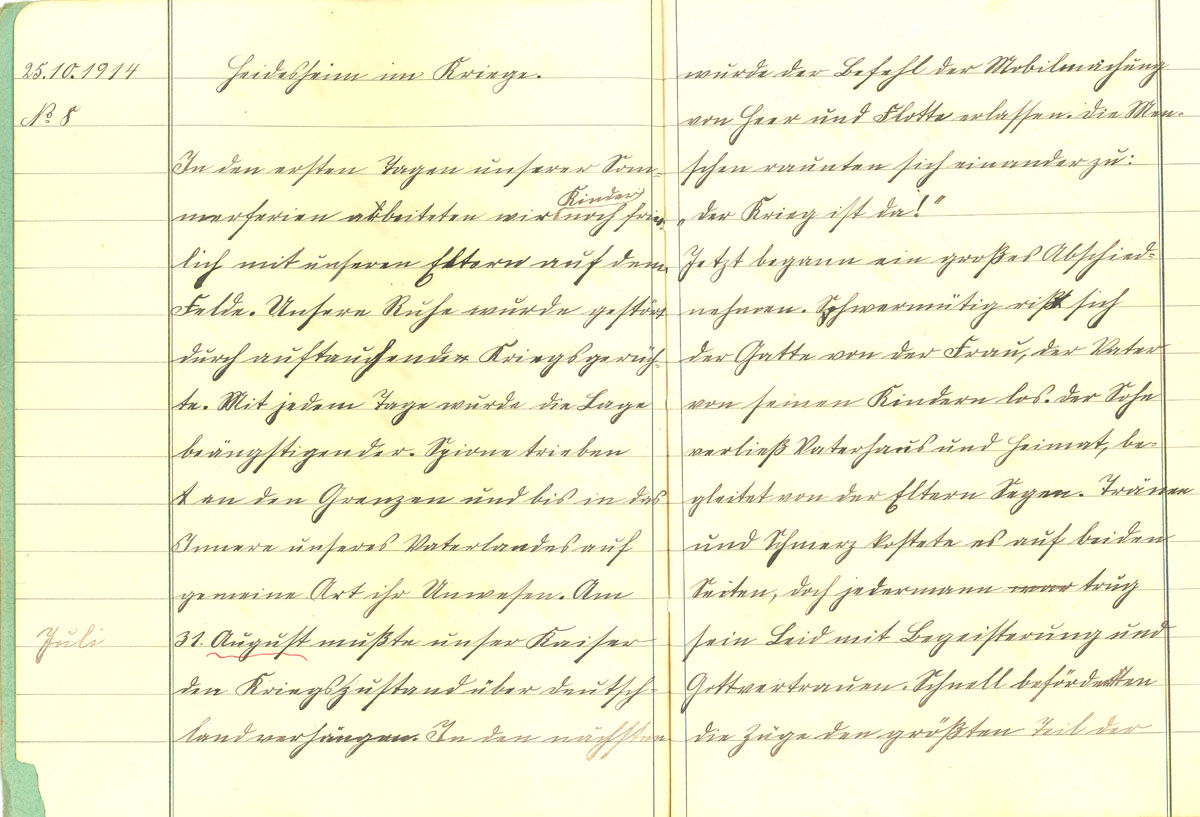 25.10.1914
Nº 8
Heidesheim im Kriege.
In den ersten Tagen unserer Som-
merferien arbeiteten wir Kinder noch fröh-
lich mit unseren Eltern auf dem
Felde. Unsere Ruhe wurde gestört
durch auftauchende Kriegsgerüch-
te. Mit jedem Tage wurde die Lage
beängstigender. Spione trieben
an den Grenzen und bis in das
Innere unseres Vaterlandes auf
gemeine Art ihr Unwesen. Am
Juli
31. August mußte unser Kaiser
den Kriegszustand über Deutsch-
land verhängen. In den nächsten
wurde der Befehl der Mobilmachung
von Heer und Flotte erlassen. Die Men-
schen raunten sich einander zu:
„Der Krieg ist da!"
Jetzt begann ein großes Abschied-
nehmen. Schwermütig riß sich
der Gatte von der Frau, der Vater
von seinen Kindern los. Der Sohn
verließ Vaterhaus und Heimat, be-
gleitet von der Eltern Segen. Tränen
und Schmerz kostete es auf beiden
Seiten, doch jedermann war trug
sein Leid mit Begeisterung und
Gottvertrauen. Schnell beförderten
die Züge den größten Teil der